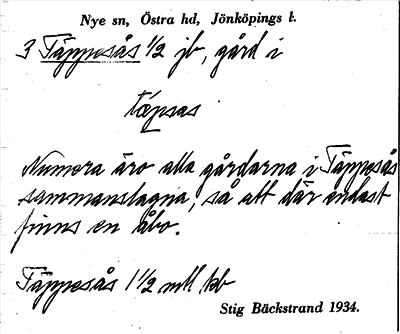 Nye sn, Östra hd, Jönköpings l.
3 Täppesås 1/2 jb, gård i
tæpsas
Numera äro alla gårdarna i Täppesås
sammanslagna, så att där endast
finns en åbo.
Täppesås 1 1/2 mtl kb
Stig Bäckstrand 1934.